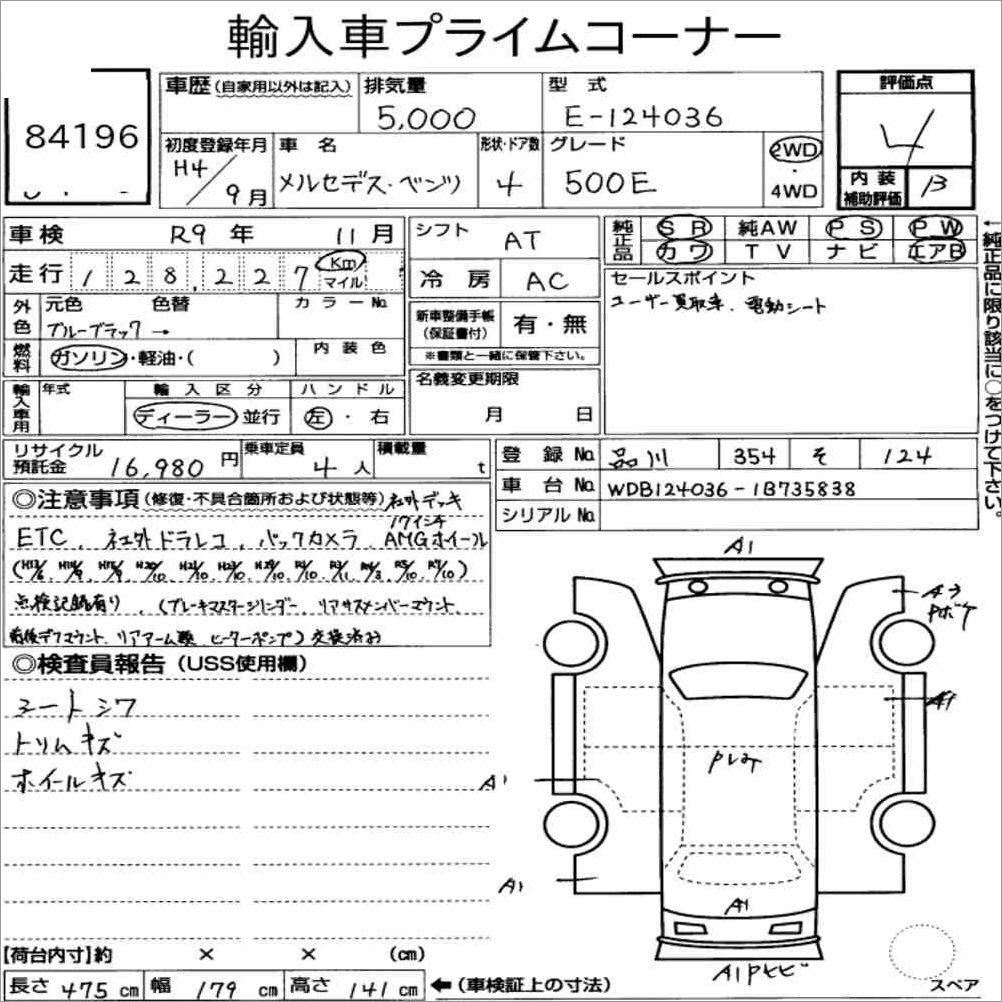 輸入車プライムコーナー
84196
車歴(自家用以外は記入)
排気量
5,000
型式
E-124036
評価点
4
初度登録年月
H4/9月
車名
メルセデス・ベンツ
形状・ドア数
4
グレード
500E
2WD
・
4WD
内装
補助評価
B
車検 R9年 11月
走行 128,227 Km
マイル
外色
元色
色替
カラーNo.
ブルーブラック→
燃料
ガソリン・軽油・( )
内装色
輸入車用
年式
輸入区分
ディーラー 並行
ハンドル
左・右
シフト
AT
冷房
AC
新車整備手帳
(保証書付)
有・無
※書類と一緒に保管下さい。
名義変更期限
月 日
純正品
SR 純AW PS PW
カワ TV ナビ エアB
セールスポイント
ユーザー買取車、電動シート
←純正品に限り該当に○をつけて下さい。
リサイクル
預託金
16,980円
乗車定員
4人
積載量
t
登録No.
品川 354 そ 124
車台No.
WDB124036-1B735838
シリアルNo.
◎注意事項(修復・不具合箇所および状態等)社外デッキ
17インチ
ETC、社外ドラレコ、バックカメラ、AMGホイール
点検記録有り、(ブレーキマスターシリンダー、リアサスメンバーマウント、
前後デフマウント、リアアーム類、ヒーターポンプ)交換済み
◎検査員報告(USS使用欄)
シートシワ
トリムキズ
ホイールキズ
A1
A3
Pボケ
A1
A1
A1
A1
A1Pヒビ
スペア
【荷台内寸】約 × × (cm)
長さ 475cm 幅 179cm 高さ 141cm ←(車検証上の寸法)